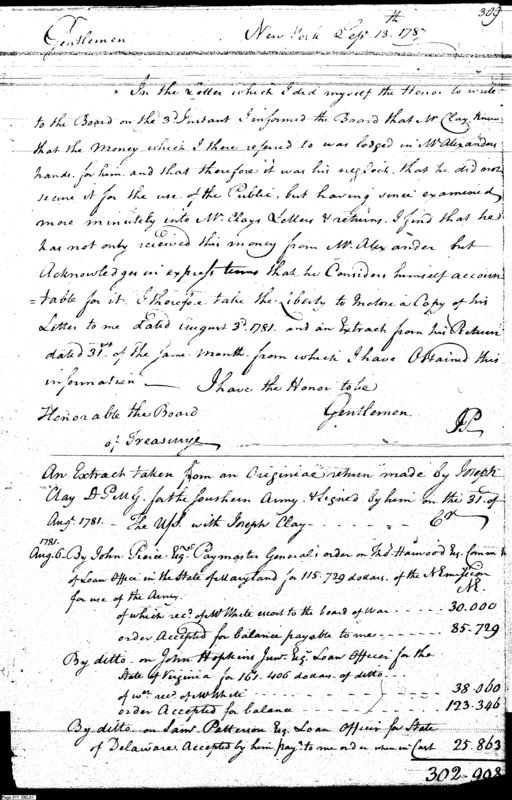 309
New York Sepr. 13th. 1787
Gentlemen
In the Letter which I did myself the Honor to write
to the Board on the 3d. Instant I informed the Board that Mr Clay knew
that the Money which I there referred to was lodged in Mr Alexanders
hands for him, and that therefore it was his neglect, that he did not
secure it for the use of the Public, but having since examined
more minutely into Mr Clays Letters & returns, I find that he
has not only received this money from Mr Alexander but
Acknowledges in express terms that he Considers himself accoun
=table for it. I therefore take the Liberty to Inclose a Copy of his
Letter to me dated August 3d. 1781. and an Extract from his Return
dated 31st. of the same month, from which I have Obtained this
information — I have the Honor to be
Honorable the Board
Gentlemen
of Treasury
JP
An Extract taken from an Originial return made by Joseph
Clay D P M G. for the Southern Army, & signed by him on the 31. of
Augt. 1781. — The U,S, with Joseph Clay
Cr
1781.
Aug. 6. By John Pierce Esqr. Paymaster Generals order on Thd Harwood Esq. Commr
of Loan Office in the State of Maryland for 115.729 dollars. of the N Emission
for use of the Army.
NE.
of which recd. of Mr White escort to the board of War 30.000
order Accepted for balance payable to me 85.729
By ditto. on John Hopkins Junr. Esq. Loan Officer for the
State of Virginia for 161.406 dollars. of ditto
of wch. recd. of Mr White 38.060
order Accepted for balance 123.346
By ditto. on Saml. Patterson Esq. Loan Officer for State
of Delaware. Accepted by him pay. to me order when in Cash 25.863
302-998